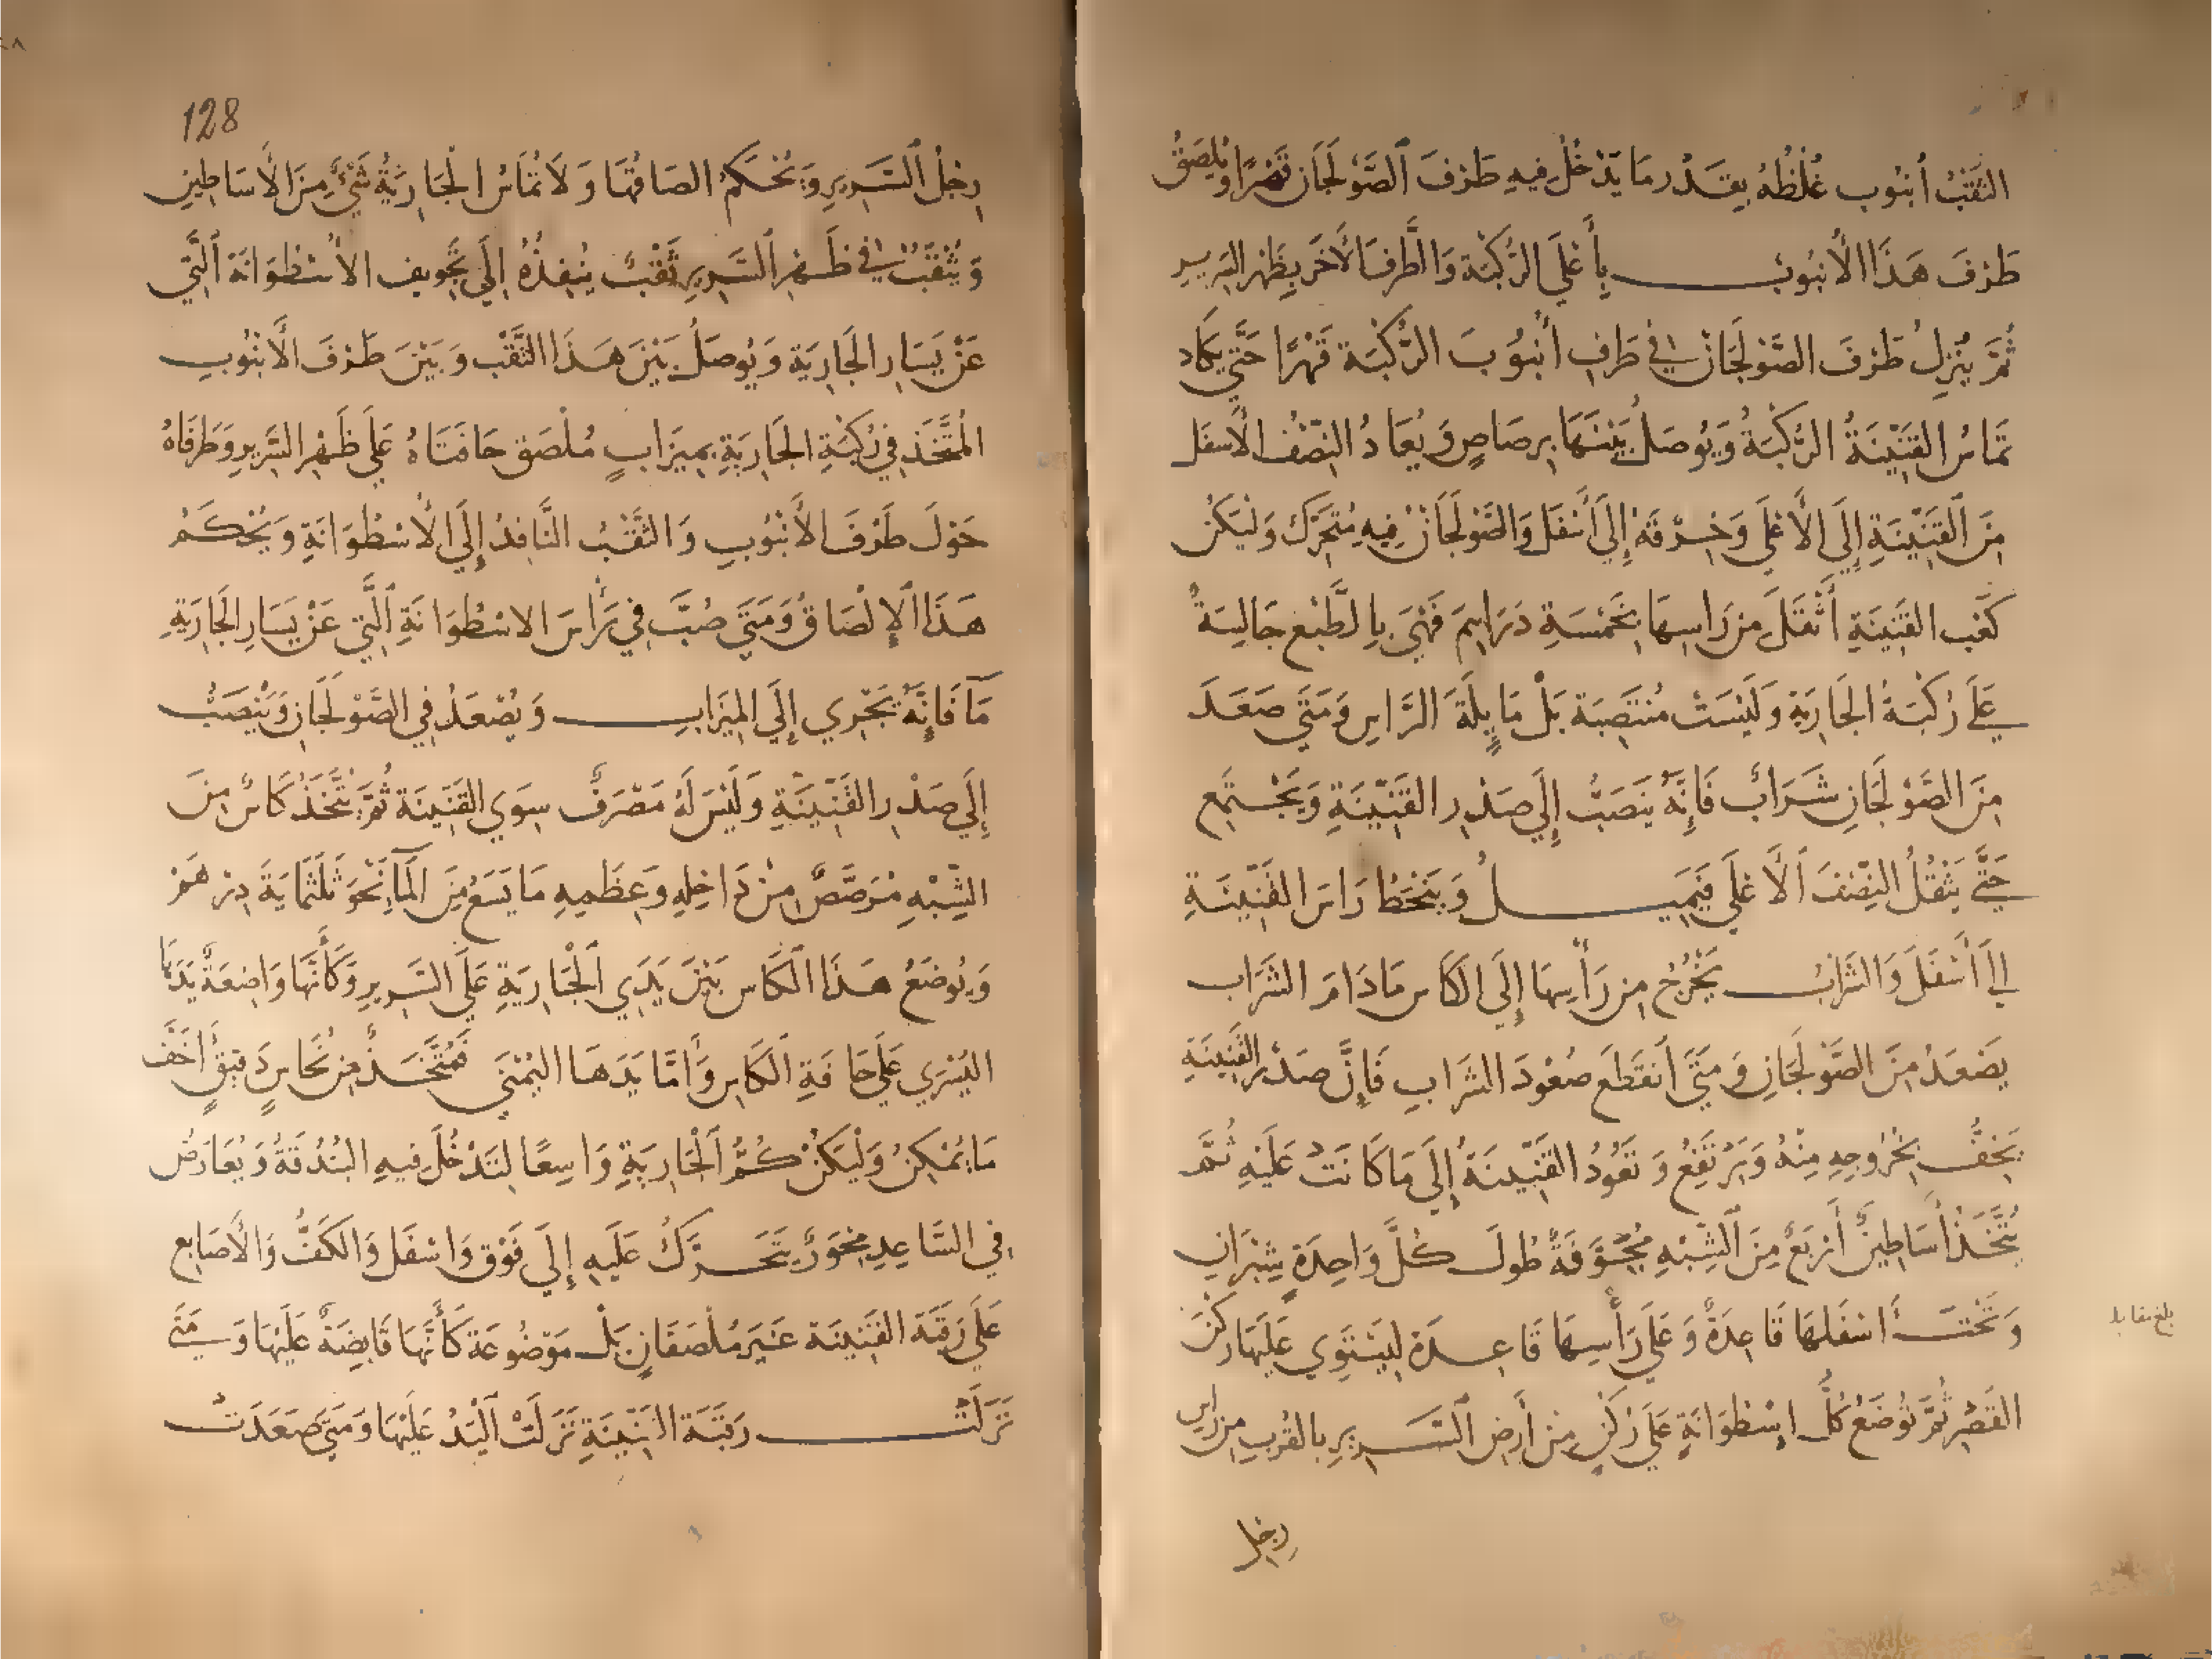 الثَّقْبُ أُنبُوب غُلظُهُ بِقَدْر مَا يَدْخُلُ فِيهِ طَرْفَ الصَّوْلَجَان قَهْرًا وَيُلصَقُ
طَرْفَ هَذَا الأُنبُوب بِأَعْلَى الرُّكْبَة وَالطَّرفَ الأَخَر بِظَهْر السَّرِير
ثُمَّ يُنْزِلُ طَرْفَ الصَّوْلَجَانْ فِي طَرَفِ أُنْبُوبَ الرُّكْبَة قَهْرًا حَتَّى يَكَاد
تَمَاسُّ القِنِّيْنَةُ الرُّكْبَةُ وَيُوصَلُ بَيْنَهَا بِرصَاصٍ وَيُعَادُ النِّصْفُ الأَسفَل
مِنَ القِنِّيْنَةِ إِلَى الأَعْلَى وَخِرقَة إِلَى أَسْفَل وَالصَّوْلَجَانْ فِيهِ مُتَحَرِّك وَليَكُن
كَعْب القِنِّيْنَةِ أَثْقَلَ مِن رَاسِهَا بِخَمْسَةِ دَرَاهِمَ فَهْيَ بِالطَّبْعِ جَالِسَةٌ
عَلَى رُكْبَةُ الجَارِيَة وَلَيْسَتْ مُنتَصِبَة بَلْ مَايِلَةَ الرَّاسِ وَمَتَى صَعَدَ
مِنَ الصَّوْلَجَانِ شَرَابٌ فَإِنَّهُ يَنصَبُّ إِلَى صَدْرِ القِنِّيْنَةِ وَيَجْتَمِع
حَتَّى يَثْقُلُ النِّصْفَ الأَعْلَى فَيَمِيلُ وَيَنحَطُ رَاسَ القِنِّيْنَةِ
إلى أَسْفَلَ وَالشَّرَابُ يَخْرُجُ مِن رَأْسِهَا إِلَى الكَاس مَا دَامَ الشَّرَاب
يَصْعَدُ مِنَ الصَّوْلَجَانِ وَمَتَى انْقَطَعَ صُعُودَ الشَّرَابِ فَإِنَّ صَدْرَ القِنِّيْنَةِ
يَخِفُّ بِخُرُوجِهِ مِنْهُ وَيَرْتَفِعُ وَتَعُودُ القِنِّيْنَةُ إِلَى مَا كَانَتْ عَلَيْهِ ثُمَّ
يُتَّخَذُ أَسَاطِينٌ أَرْبَعٌ مِنَ الشَّبْهِ مُجَوَّفَةٌ طُولَ كُلَّ وَاحِدَةٍ شِبْرَانِ
وَتَحْتَ أَسْفَلَهَا قَاعِدَةٌ وَعَلَى رَأْسِهَا قَاعِدَة لِيَسْتَوِي عَلَيهَا رُكْنَ
القَصْرِ ثُمَّ تُوضَعُ كُلُّ اِسْطُوَانَةٍ عَلَى رُكْنٍ مِنْ أَرضِ السَّرِيرِ بِالقُربِ مِن رَاس
رِجل
بلغ مقابله
128
رِجْلُ السَّرِيرِ وَيُحْكَمُ الصَاقُهَا وَلاَ تُمَاسُ الجَارِيَةُ شَيْءٌ مِنَ الأَسَاطِينِ
وَيُثْقَبُ فِي ظَهْرِ السَّرِيرِ ثَقْبٌ يُنفِذُهُ إِلَى تَجْوِيف الأُسْطُوَانَة الَّتِي
عَنْ يَسَارِ الجَارِيَةِ وَيُوصَلُ بَيْنَ هَذَا الثَّقْب وَبَيْنَ طَرْفَ الأَنبُوبِ
المُتَّخَذ فِي رُكْبَةِ الجَارِيَةِ بِمِيزَابٍ مُلْصَق حَافَتَاهُ عَلَى ظَهْرِ السَّرِيرِ وَطَرَفَاهُ
حَوْلَ طَرْفَ الأَنْبُوبِ وَالثَّقْبُ النَّافِذُ إِلَى الأُسْطُوَانَةِ وَيُحْكَمُ
هَذَا الإِلْصَاقُ وَمَتَى صُبَّ فِي رَأْسَ الاسْطُوَانَةِ الَّتِي عَنْ يَسَارِ الجَارِيَةِ
مَآ فَإِنَّهُ يَجْرِي إِلَى المِيزَابِ وَيُصْعَدُ فِي الصَّوْلَجَانِ وَيَنْصَبُّ
إِلَى صَدْرِ القِنِّيْنَةِ وَلَيْسَ لَهُ مَصْرَفٌ سِوَى القِنِّيْنَة ثُمَّ يُتَّخَذُ كَاسٌ مِنَ
الشَّبْهِ مُرَصَّصٌ مِنْ دَاخِلِهِ وَعِظَمِهِ مَا يَسَعُ مِنَ المَآءِ نَحْوَ ثَلَثَمَايَةَ دِرْهَمْ
وَيُوضَعُ هَذَا الكَاس بَيْنَ يَدَي الجَارِيَةِ عَلَى السَّرِيرِ وَكَأَنَّهَا وَاضِعَةٌ يَدَهَا
اليُسْرَى عَلَى حَافَةِ الكَاسِ وَأَمَّا يَدَهَا اليُمْنَى فَمُتَّخَذٌ مِن نُحَاسٍ دَقِيقٍ أَخَفَّ
مَا يُمْكِنُ وَلْيَكُنْ كُمُّ الجَارِيَةِ وَاسِعًا لِتَدْخُلَ فِيهِ البُنْدُقَةُ وَيُعَارَضُ
فِي السَّاعِدِ مِحْوَرٌ يَتَحَرَّكُ عَلَيهِ إِلَى فَوْق وَاسْفَل وَالكَفُّ وَالأَصَابِع
عَلَى رَقَبَة القِنِّيْنَة غَيْرَ مُلْصَقَانِ بَلْ مَوْضُوعَة كَأَنَّهَا قَابِضَةٌ عَلَيْهَا وَمَتَى
نَزَلَتْ رَقَبَة القِنِّيْنَةِ نَزَلَتْ اليَدُ عَلَيْهَا وَمَتَى صَعَدَتْ